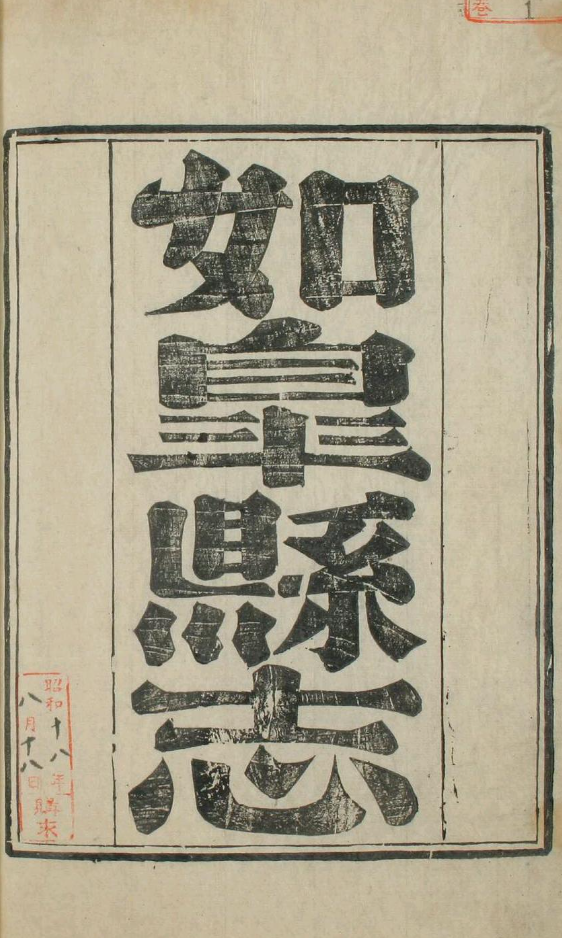 如皋縣志
昭和十八年
八月十八日購求
卷
1